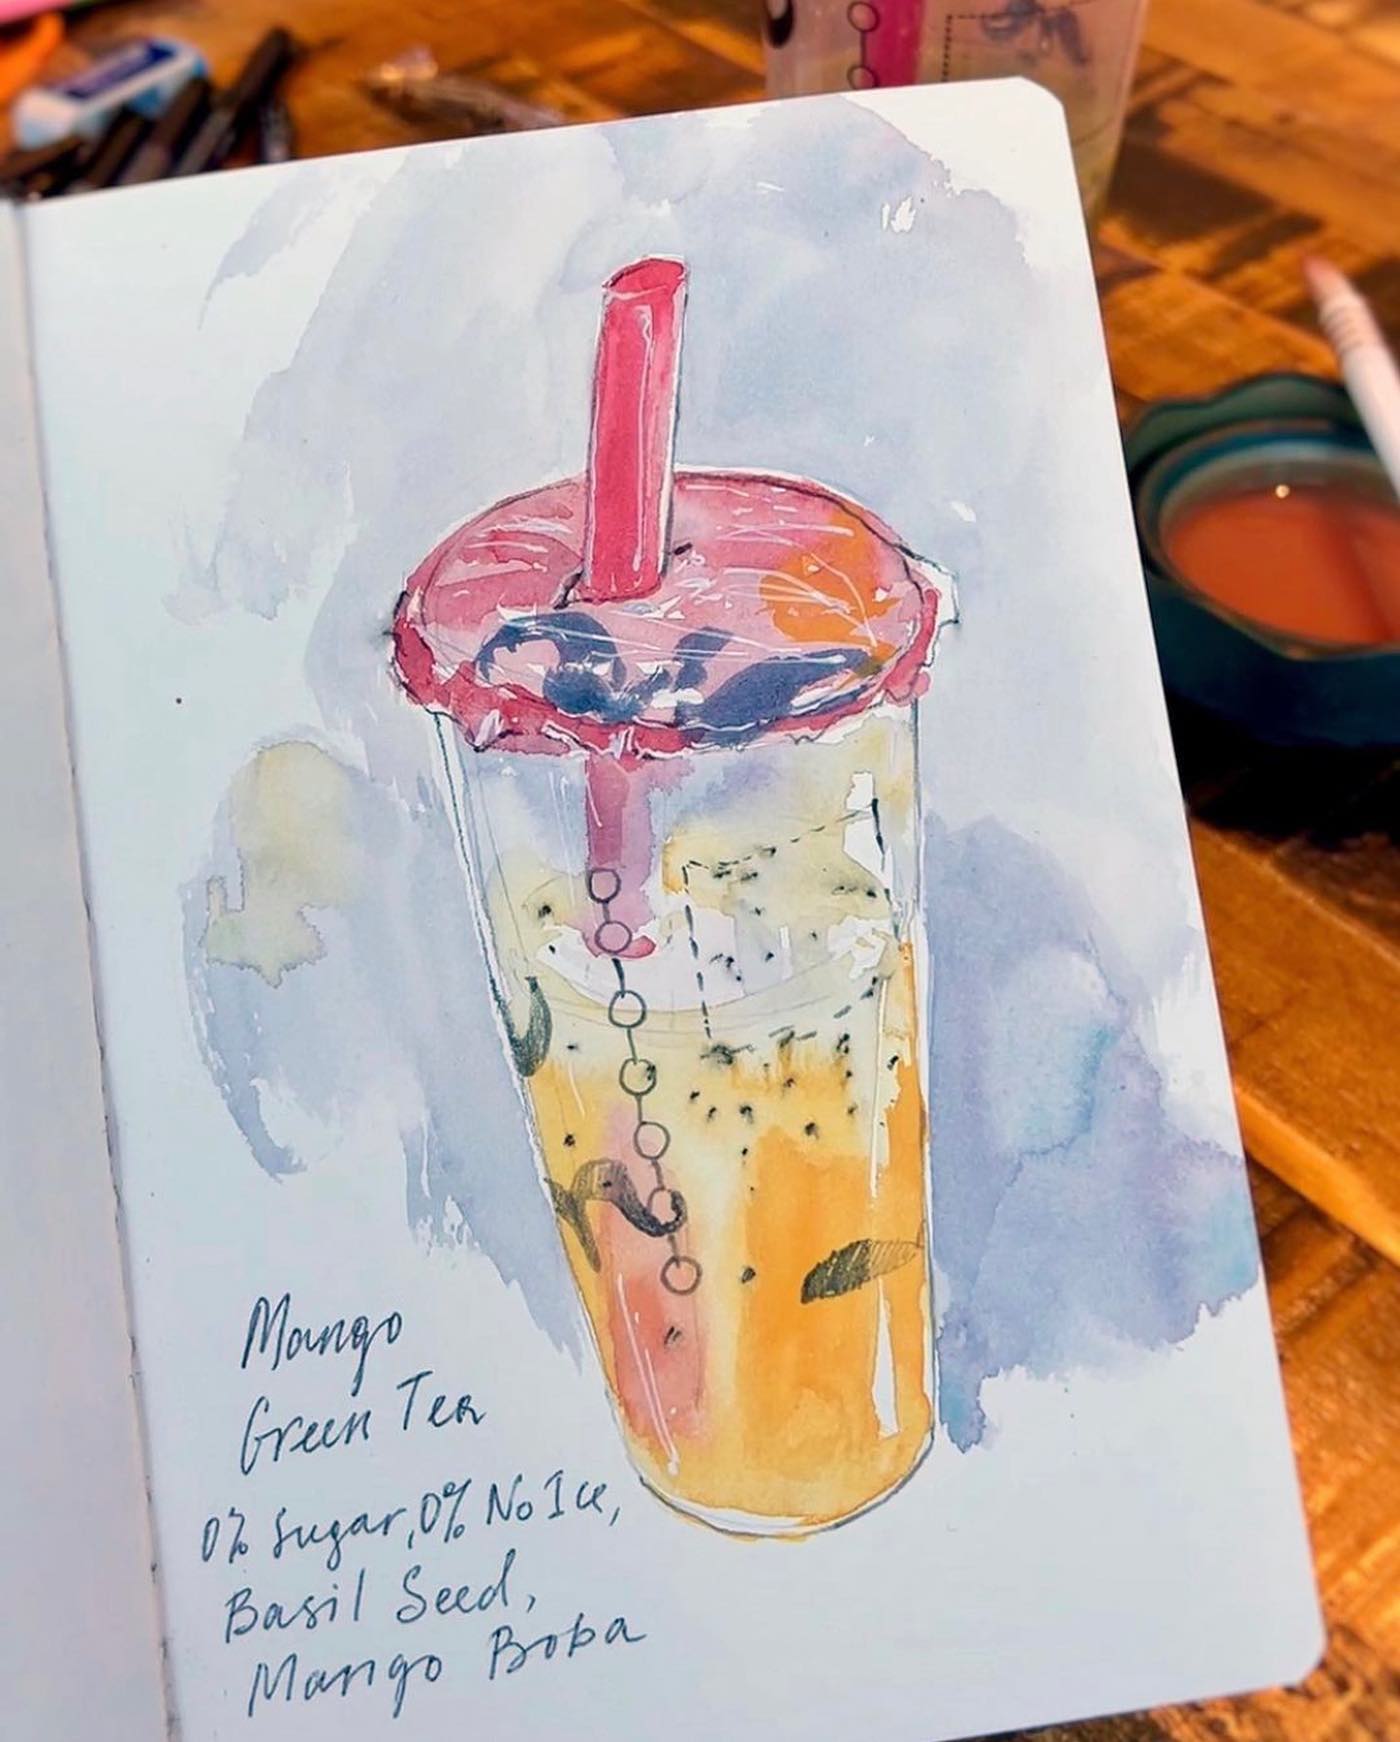 Mango
Green Tea
0% Sugar, 0% No Ice,
Basil Seed,
Mango Boba